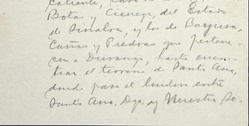 Caliente, 
Bota y Cienega, del Estado
de Sinaloa, y los de Bazgusa,
Cañas y Piedras que pertene-
cen a Durango, hasta encon-
trar el terreno de Santa Ana,
dond pasa el lindero entre
Santa Ana, Dgo. y Nuestra Se-